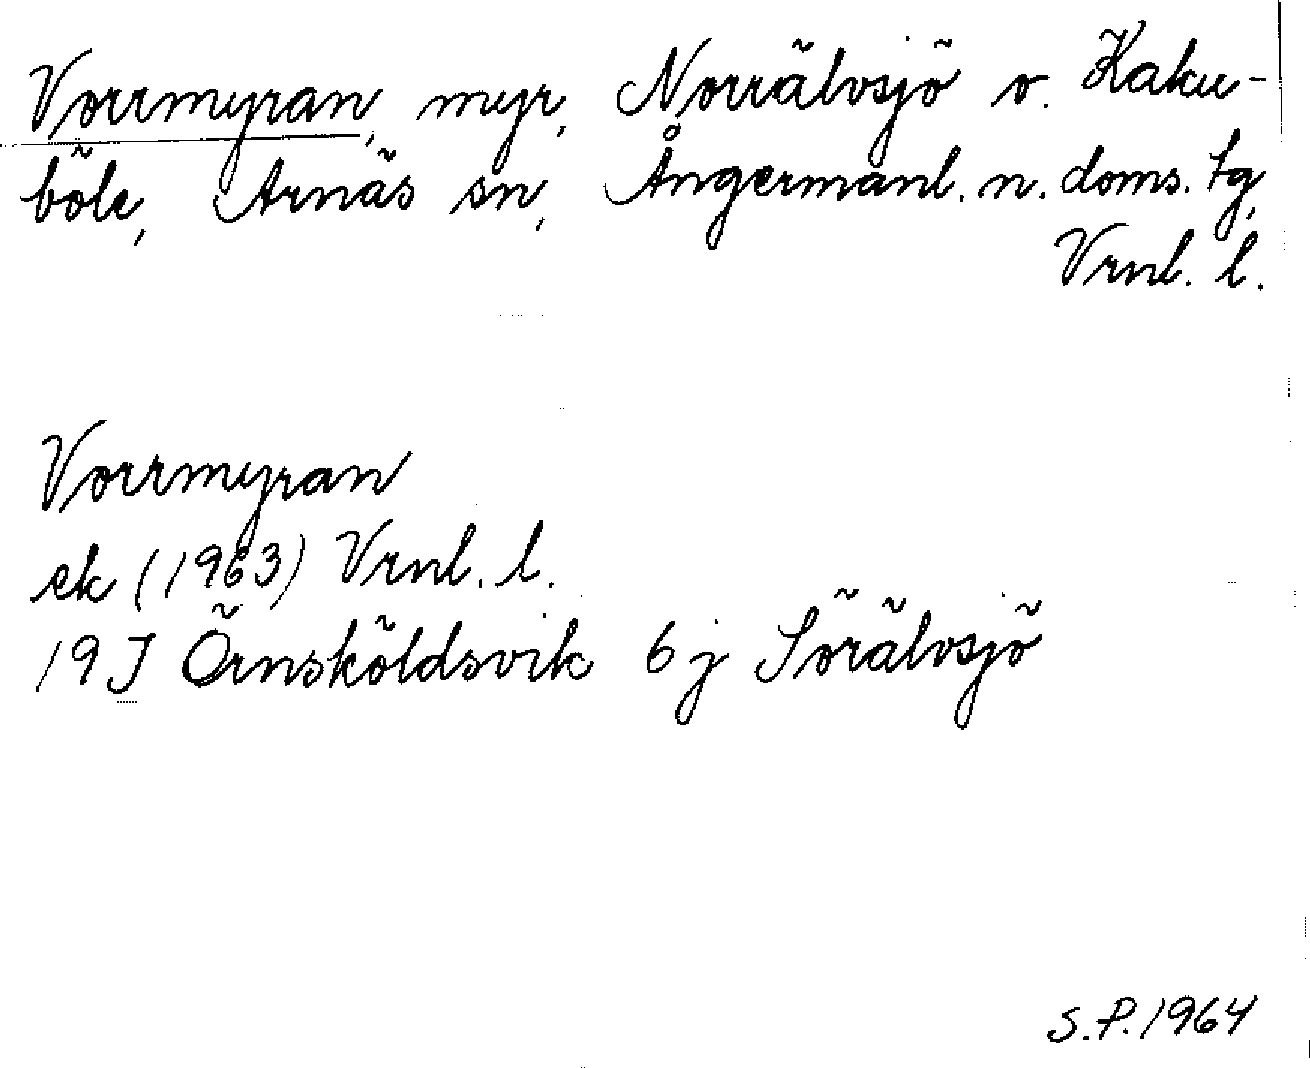 Vorrmyran, myr, Norrälvsjö o. Kaku-
böle, Arnäs sn, Ångermanl. n. doms. tg,
Vrnl. l.
Vorrmyran
ek (1963) Vrnl. l.
19J Örnsköldsvik 6j Sörälvsjö
S.P. 1964